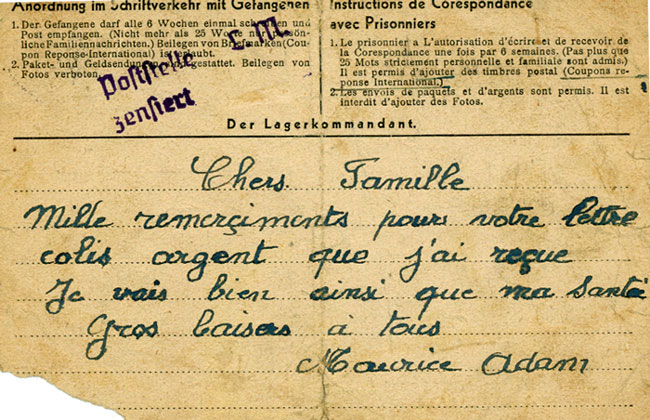 Anordnung im Schriftverkehr mit Gefangenen
1. Der Gefangene darf alle 6 Wochen einmal schreiben und
Post empfangen. (Nicht mehr als 25 Worte
Familiennachrichten.) Beilegen von Briefmarken(Cou-
pon Reponse-International) ist erlaubt.
2. Paket- und Geldsendung gestattet. Beilegen von
Fotos verboten.
Poststelle
zensiert
Instructions de Corespondance
avec Prisonniers
1. Le prisonnier a L'autorisation d'écrire et de recevoir de
la Corespondance une fois par 6 semaines. (Pas plus que
25 Mots strictement personnelle et familiale sont admis.)
Il est permis d'ajouter des timbres postal (Coupons re-
ponse International.)
2. Les envois de paquets et d'argents sont permis. Il est
interdit d'ajouter des Fotos.
Der Lagerkommandant.
Chers Famille
Mille remerçiments pour votre lettre
colis argent que j'ai reçue
Je vais bien ainsi que ma santé
Gros baisers à tous
Maurice Adam